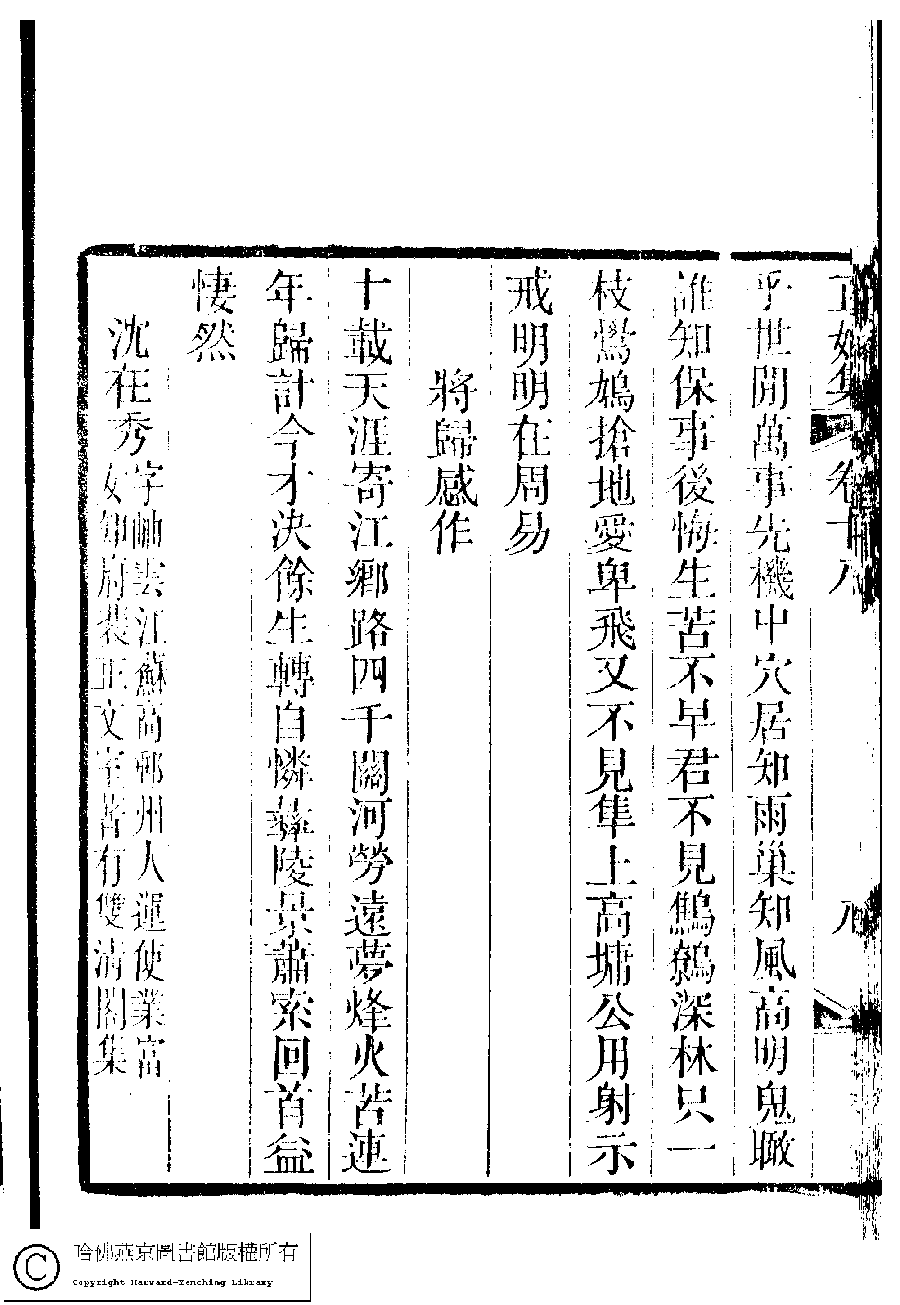 正始集 卷十八 八
乎世間萬事先機中穴居知雨巢知風高明鬼瞰
誰知保事後悔生苦不早君不見鷦鷯深林只一
枝鷽鳩搶地愛卑飛又不見隼上高墉公用射示
戒明明在周易
將歸感作
十載天涯寄江鄉路四千關河勞遠夢烽火苦連
年歸計今才決餘生轉自憐彝陵景蕭索回首益
悽然
沈在秀字岫雲江蘇高郵州人運使業富
女知府裴正文室著有雙清閣集
哈佛燕京圖書館版權所有
Copyright Harvard-Yenching Library